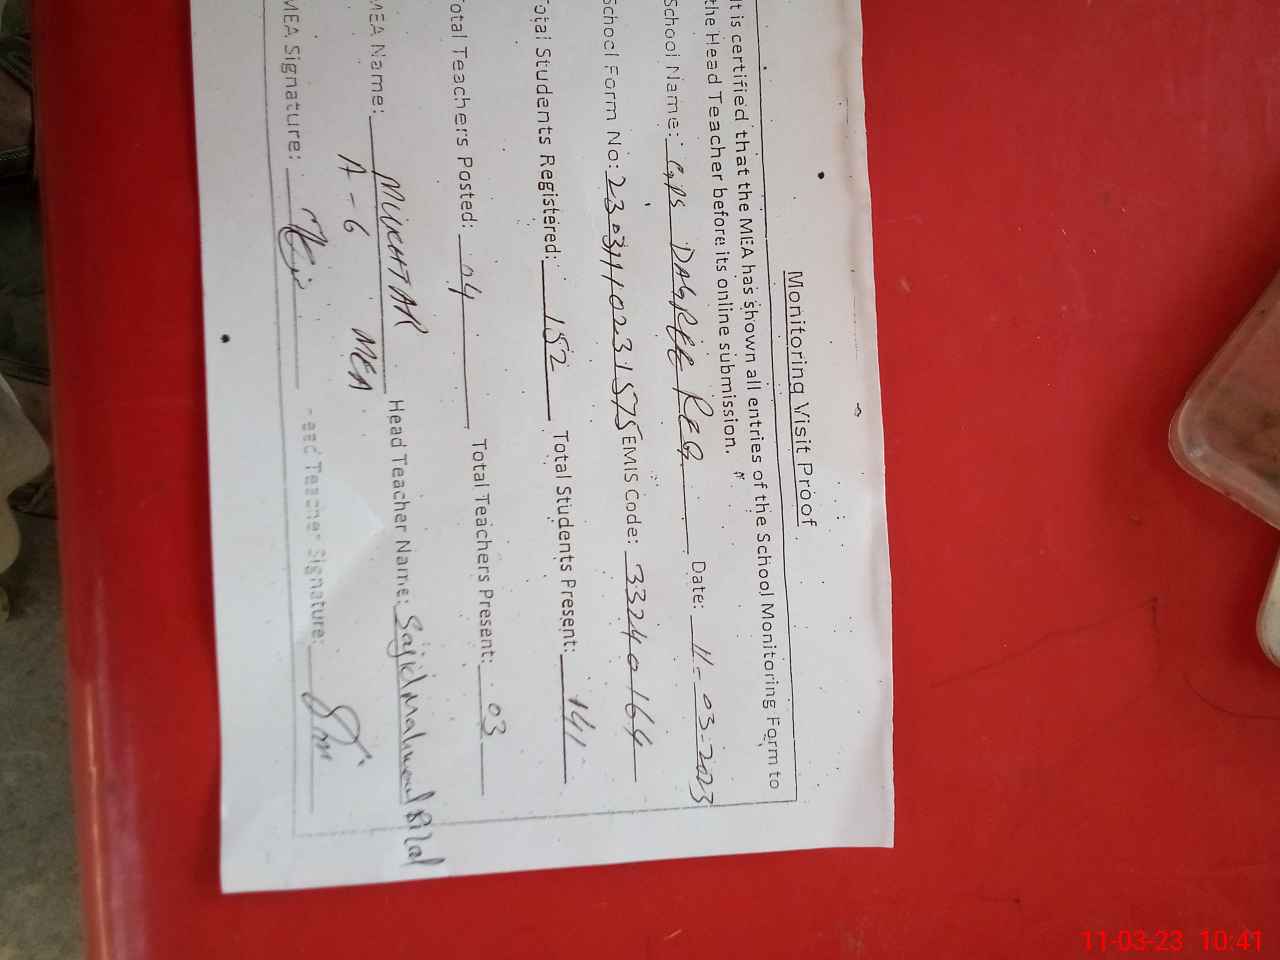 Monitoring Visit Proof
It is certified that the MEA has shown all entries of the School Monitoring Form to
the Head Teacher before its online submission.
School Name: GPS DAGREE REG. Date: 11-03-2023
School Form No: 2303110231575 EMIS Code: 33240164
Total Students Registered: 152 Total Students Present: 141
Total Teachers Posted: 04 Total Teachers Present: 03
MEA Name: MUKHTAR Head Teacher Name: Sajid Mahmood Bilal
A-6 MEA
MEA Signature: Head Teacher Signature:
11-03-23 10:41